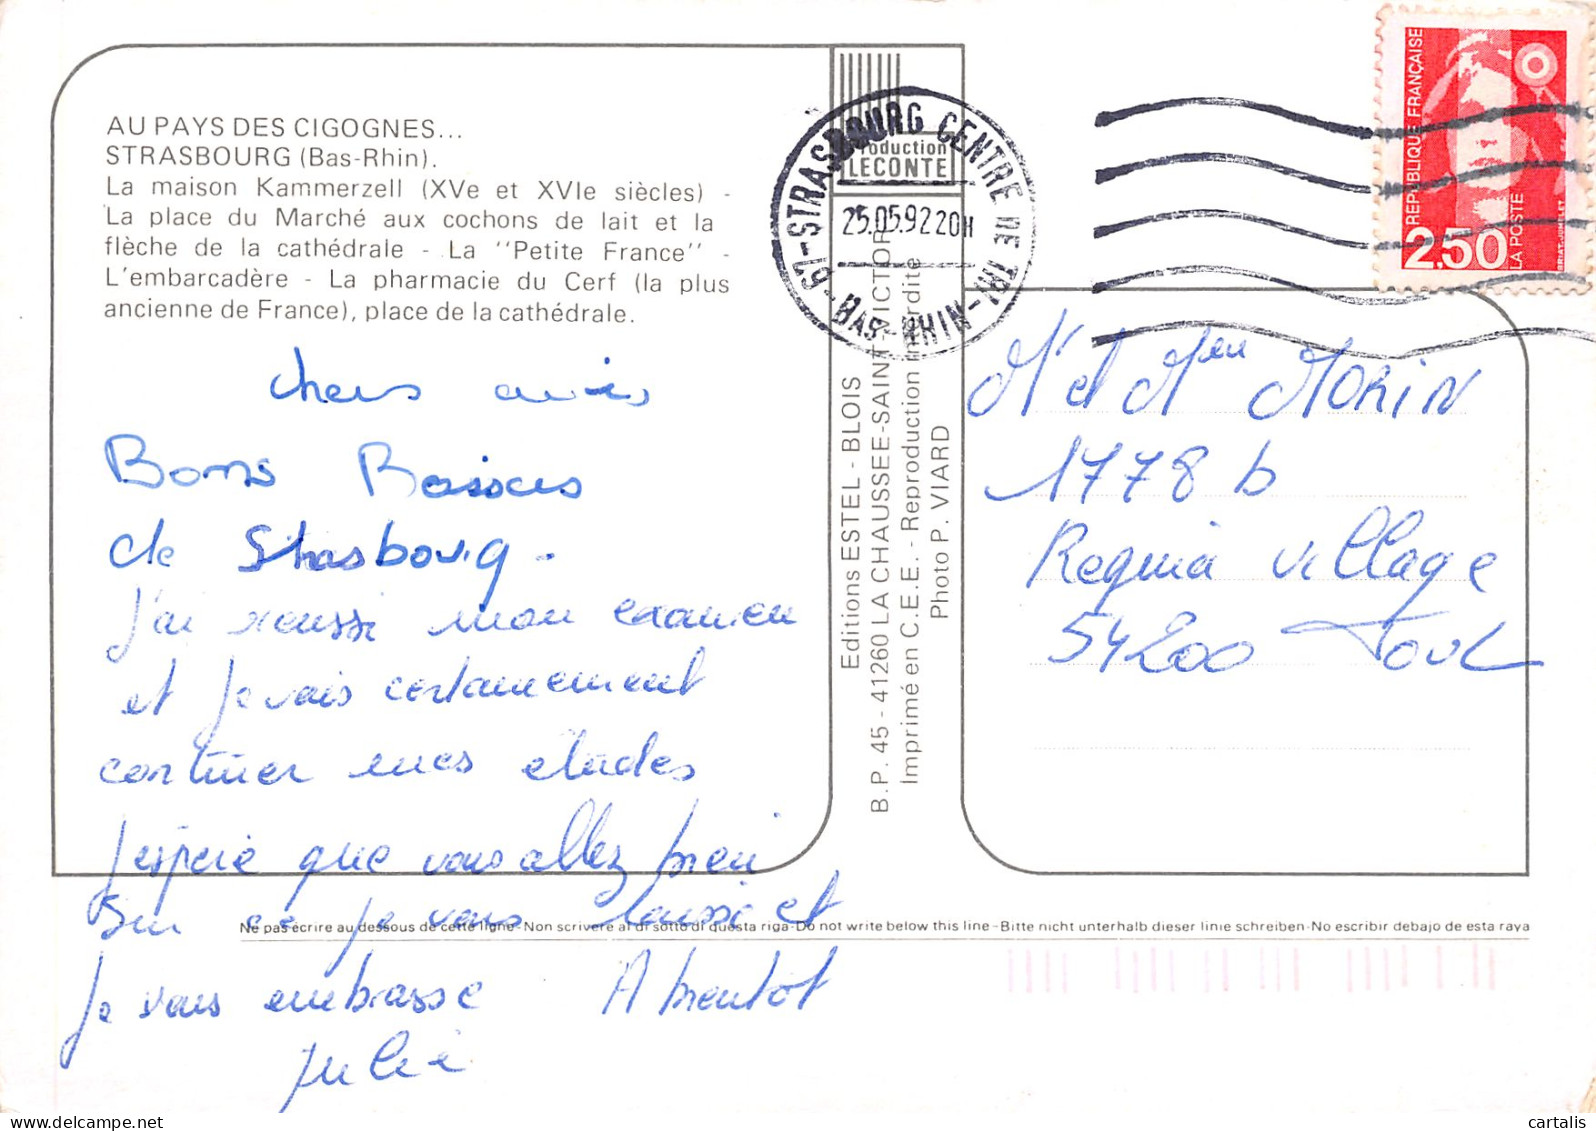 AU PAYS DES CIGOGNES...
STRASBOURG (Bas-Rhin).
La maison Kammerzell (XVe et XVIe siècles) -
La place du Marché aux cochons de lait et la
flèche de la cathédrale - La "Petite France" -
L'embarcadère - La pharmacie du Cerf (la plus
ancienne de France), place de la cathédrale.
chers amis
Bons Baisers
de Strasbourg -
J'ai reussi mon examen
et je vais certainement
continuer mes etudes
J'espere que vous allez bien
Sur ce je vous laisse et
Je vous embrasse A bientot
Julie
Production
LECONTE
67-STRASBOURG CENTRE DE TRI-BAS-RHIN
25.05.92 20H
Editions ESTEL - BLOIS
B.P. 45 - 41260 LA CHAUSSEE-SAINT-VICTOR
Imprimé en C.E.E. - Reproduction interdite
Photo P. VIARD
REPUBLIQUE FRANÇAISE
2,50
LA POSTE
BRIAT-JUMELET
Mr et Mme MORIN
1778 b
Regina Village
54200 Toul
Ne pas écrire au dessous de cette ligne - Non scrivere al di sotto di questa riga - Do not write below this line - Bitte nicht unterhalb dieser linie schreiben - No escribir debajo de esta raya
cartalis